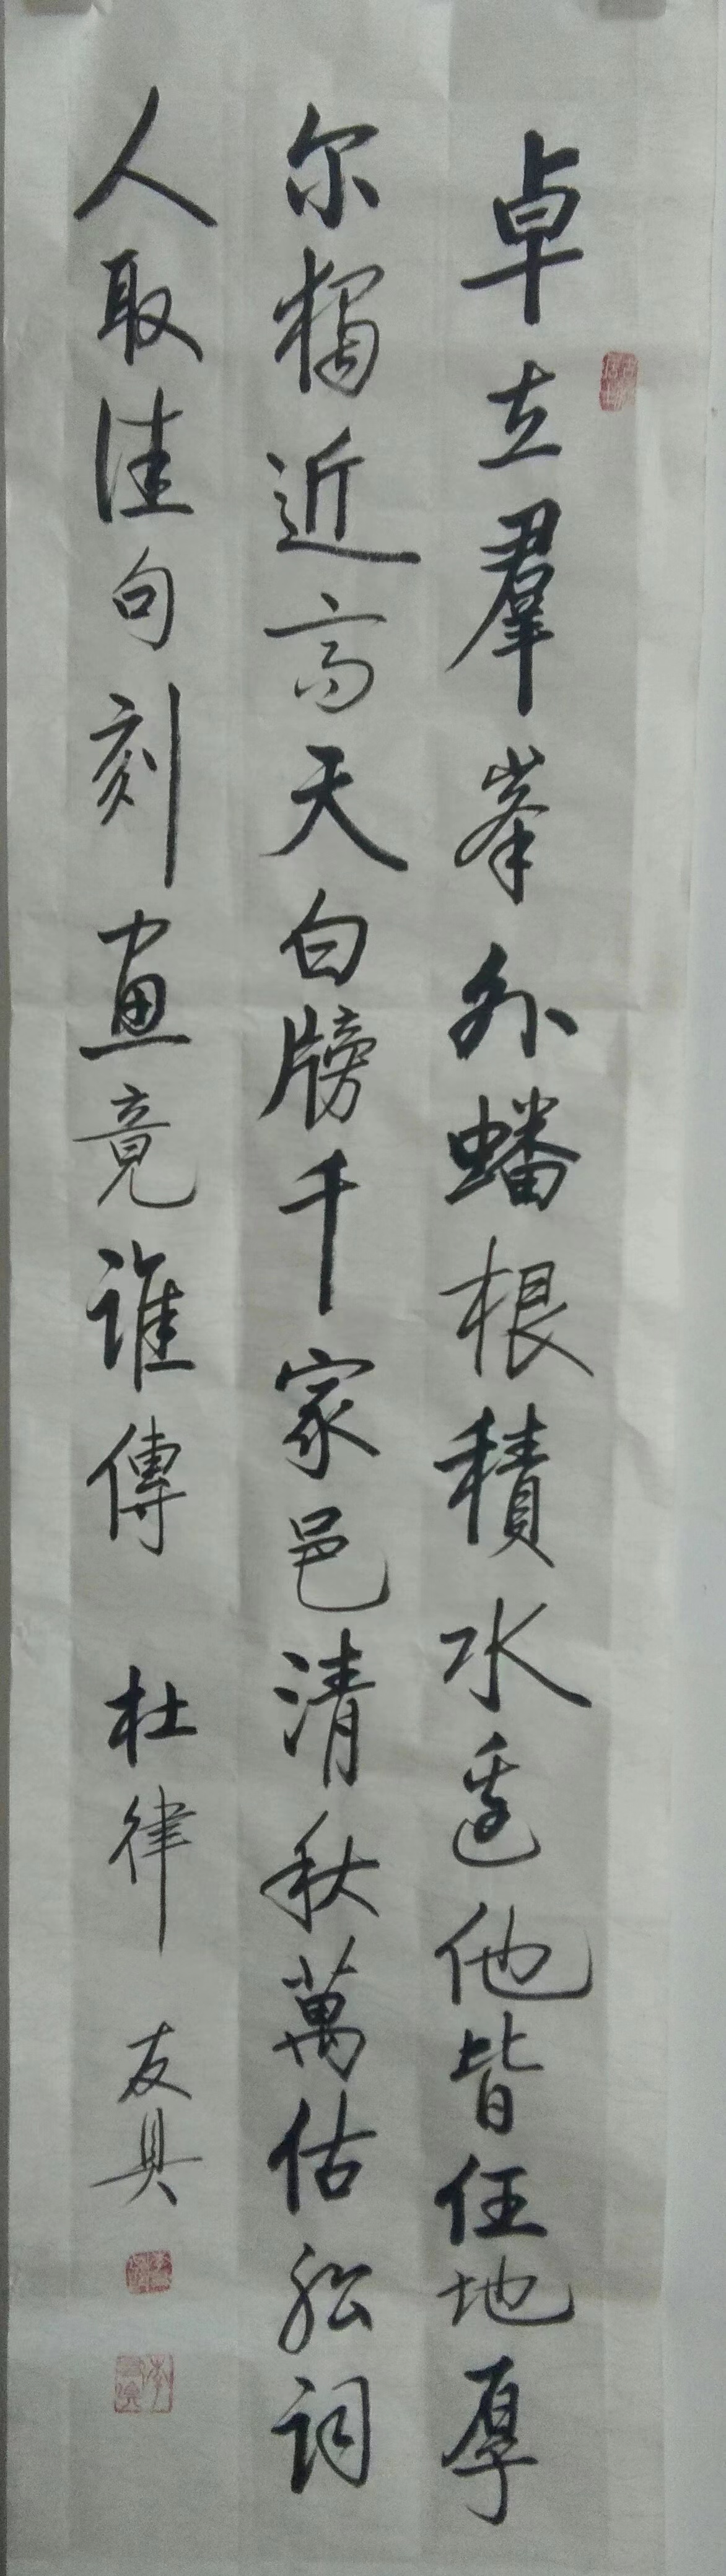 卓立羣峯外蟠根積水邊他皆任地厚
尔獨近高天白牓千家邑清秋萬估舩詞
人取佳句刻畫竟誰傳 杜律 友具